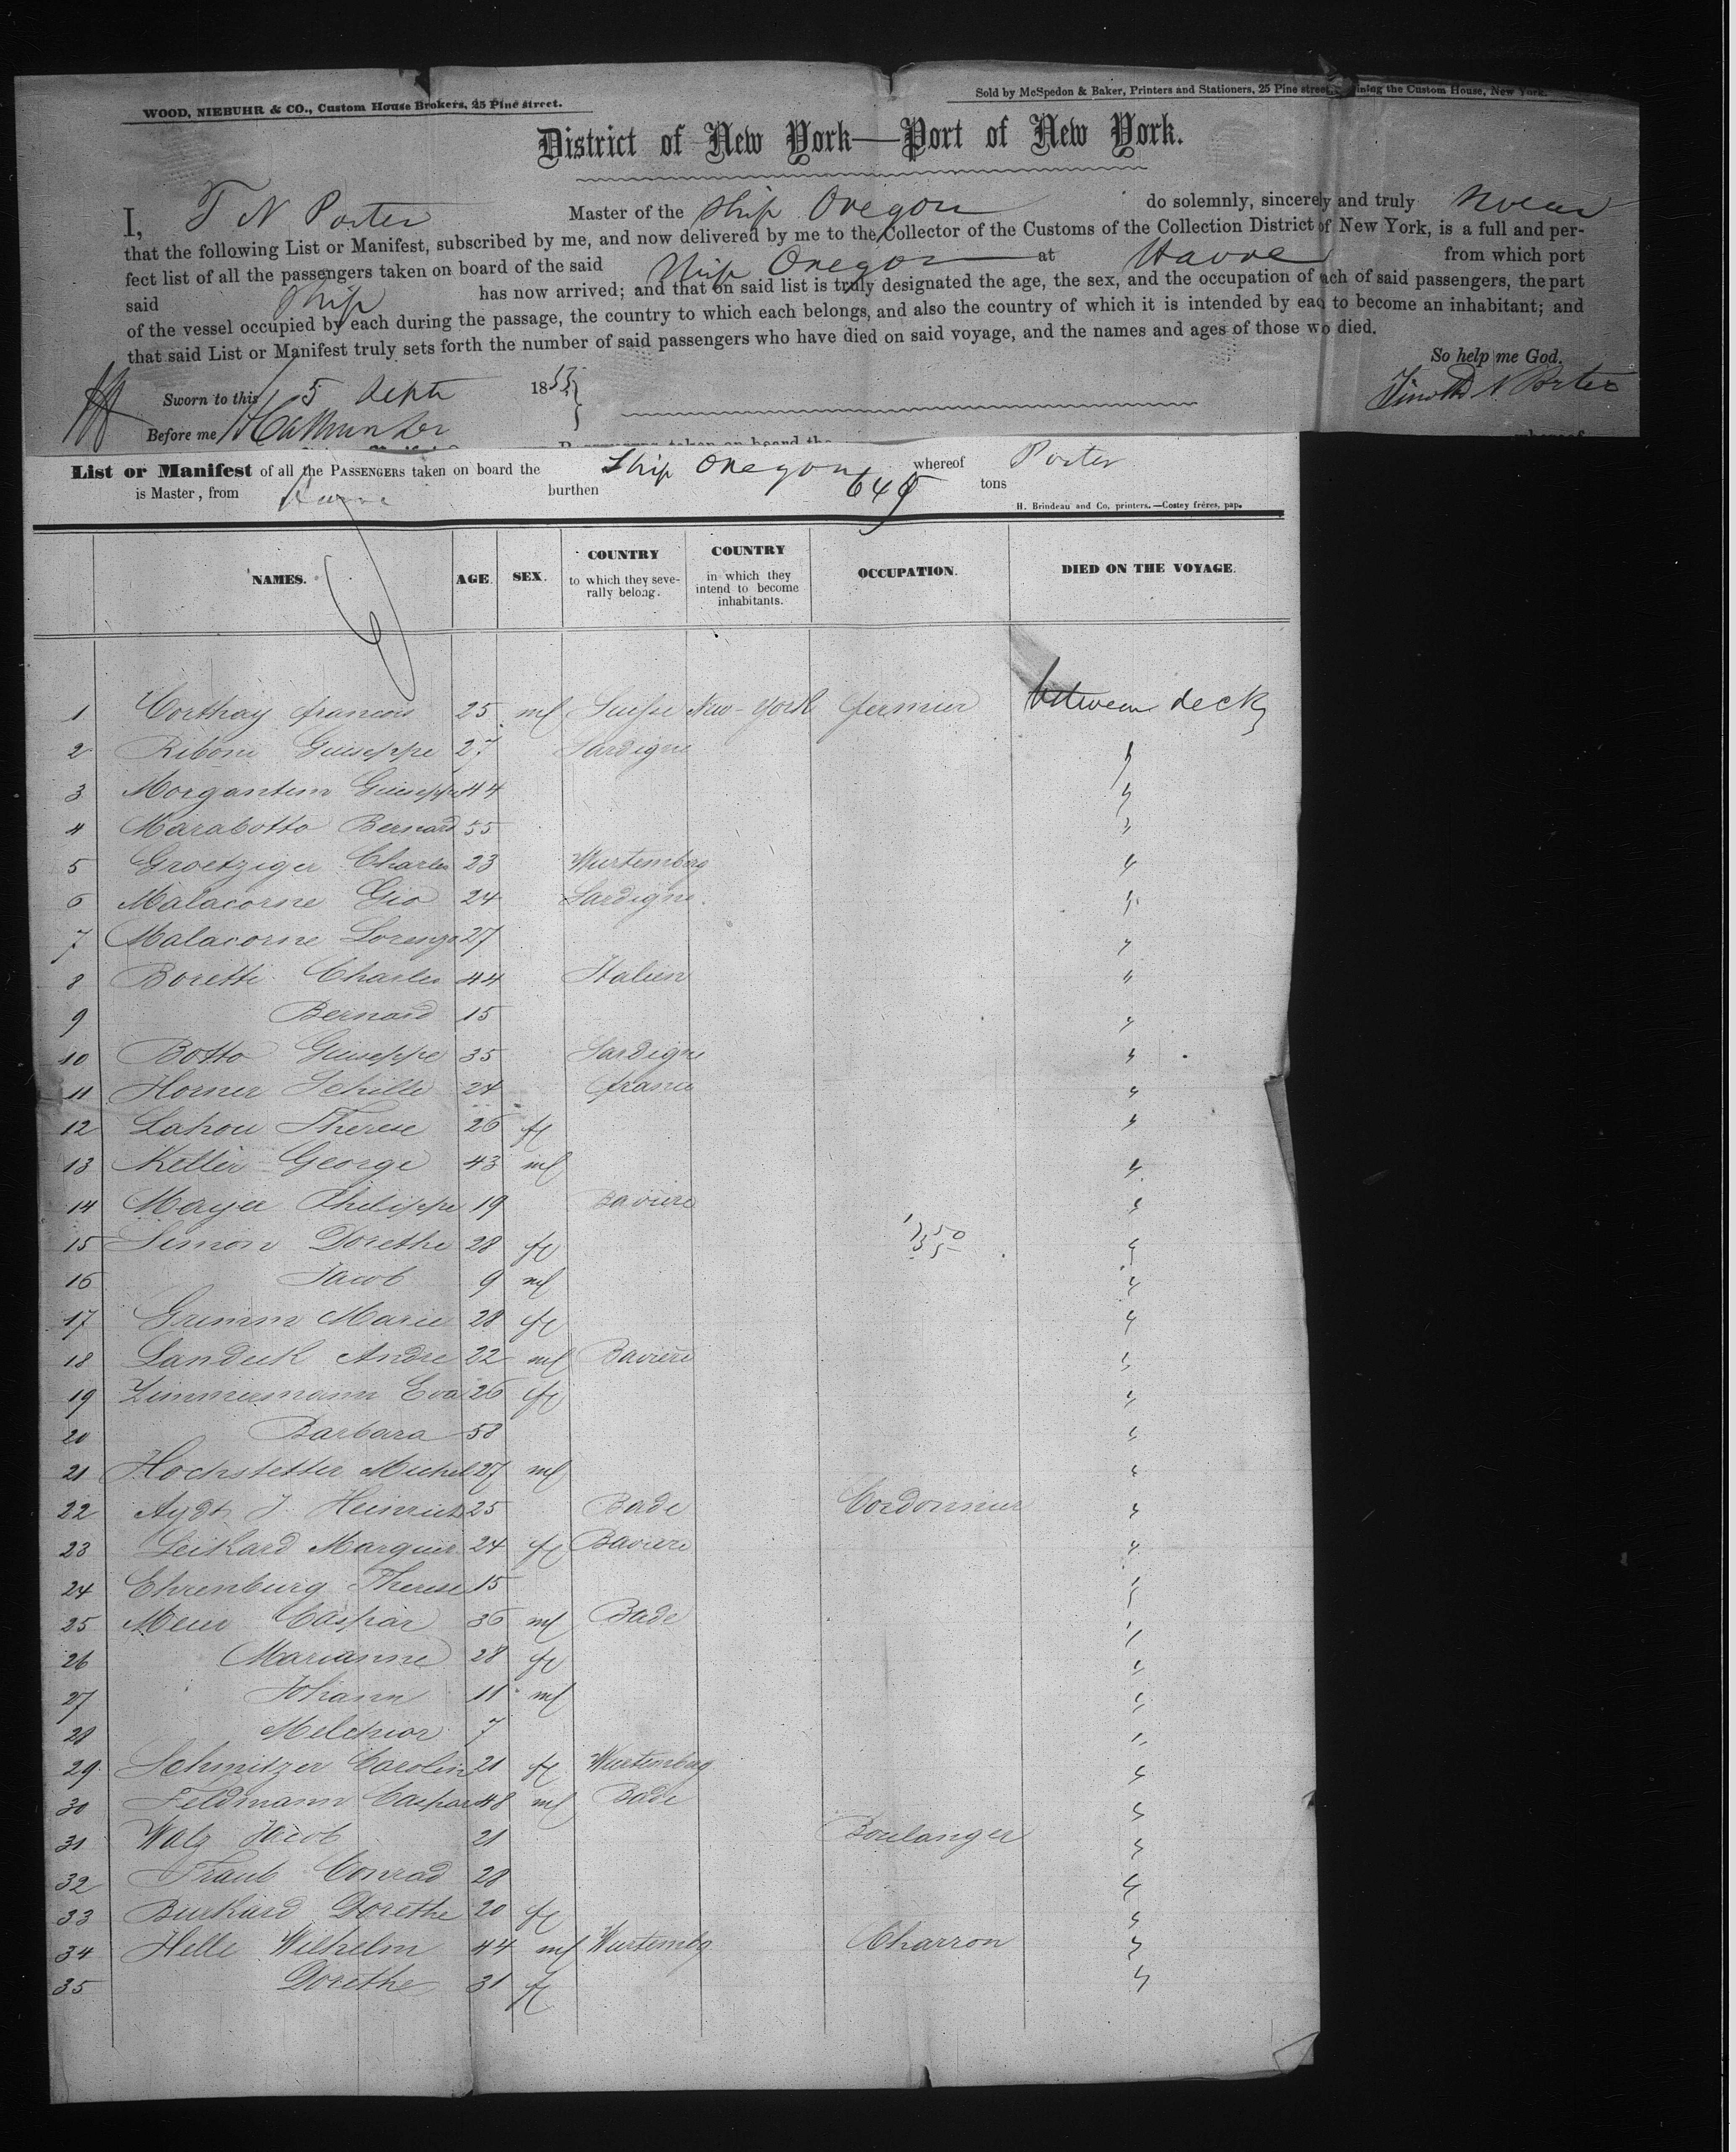 WOOD, NIEBUHR & CO., Custom House Brokers, 25 Pine street.
Sold by McSpedon & Baker, Printers and Stationers, 25 Pine street, ining the Custom House, New York.
District of New York—Port of New York.
I, T N Porter Master of the Ship Oregon do solemnly, sincerely and truly swear
that the following List or Manifest, subscribed by me, and now delivered by me to the Collector of the Customs of the Collection District of New York, is a full and per-
fect list of all the passengers taken on board of the said Ship Oregon at Havre from which port
said Ship has now arrived; and that on said list is truly designated the age, the sex, and the occupation of ach of said passengers, the part
of the vessel occupied by each during the passage, the country to which each belongs, and also the country of which it is intended by eac to become an inhabitant; and
that said List or Manifest truly sets forth the number of said passengers who have died on said voyage, and the names and ages of those wo died.
So help me God.
Sworn to this 5 Septr 1855
Timothy N Porter
Before me
List or Manifest of all the PASSENGERS taken on board the Ship Oregon whereof Porter
is Master, from Havre burthen 645 tons
H. Brindeau and Co, printers.—Costey fréres, pap.
NAMES. AGE. SEX. COUNTRY to which they seve-rally belong. COUNTRY in which they intend to become inhabitants. OCCUPATION. DIED ON THE VOYAGE.
1 Corthay francois 25 ml Suisse New-York fermier between deck
2 Riboni Guiseppe 27 Sardigne "
3 Morgantini Guiseppe 44 "
4 Marabotto Bernard 55 "
5 Groetziger Charles 23 Wurtemberg "
6 Malacorne Gio 24 Sardigne. "
7 Malacorne Lorenzo 27 "
8 Boretti Charles 44 Italien "
9 Bernard 15 "
10 Botto Guiseppe 35 Sardigne "
11 Horner Schille 24 france "
12 Lahou Therese 26 fl "
13 Keller George 43 ml "
14 Mayer Philippe 19 Baviere "
15 Simon Dorethe 28 fl "
16 Jacob 9 ml "
17 Grimm Marie 28 fl "
18 Landeck Andre 22 ml Baviere "
19 Zimmermann Eva 26 fl "
20 Barbara 58 "
21 Hochstetter Michel 27 ml "
22 Aydt J. Heinrich 25 Bade Cordonnier "
23 Leikard Marguer 24 fl Baviere "
24 Ehrenburg Therese 15 "
25 Meier Caspar 36 ml Bade "
26 Marianne 28 fl "
27 Johann 11 ml "
28 Melchior 7 "
29 Schmitzer Carolin 21 fl Wurtemberg "
30 Feldmann Caspar 48 ml Bade "
31 Walz Jacob 21 Boulanger "
32 Traub Conrad 28 "
33 Burkard Dorethe 20 fl "
34 Helle Wilhelm 44 ml Wurtembg Charron "
35 Dorethe 31 fl "